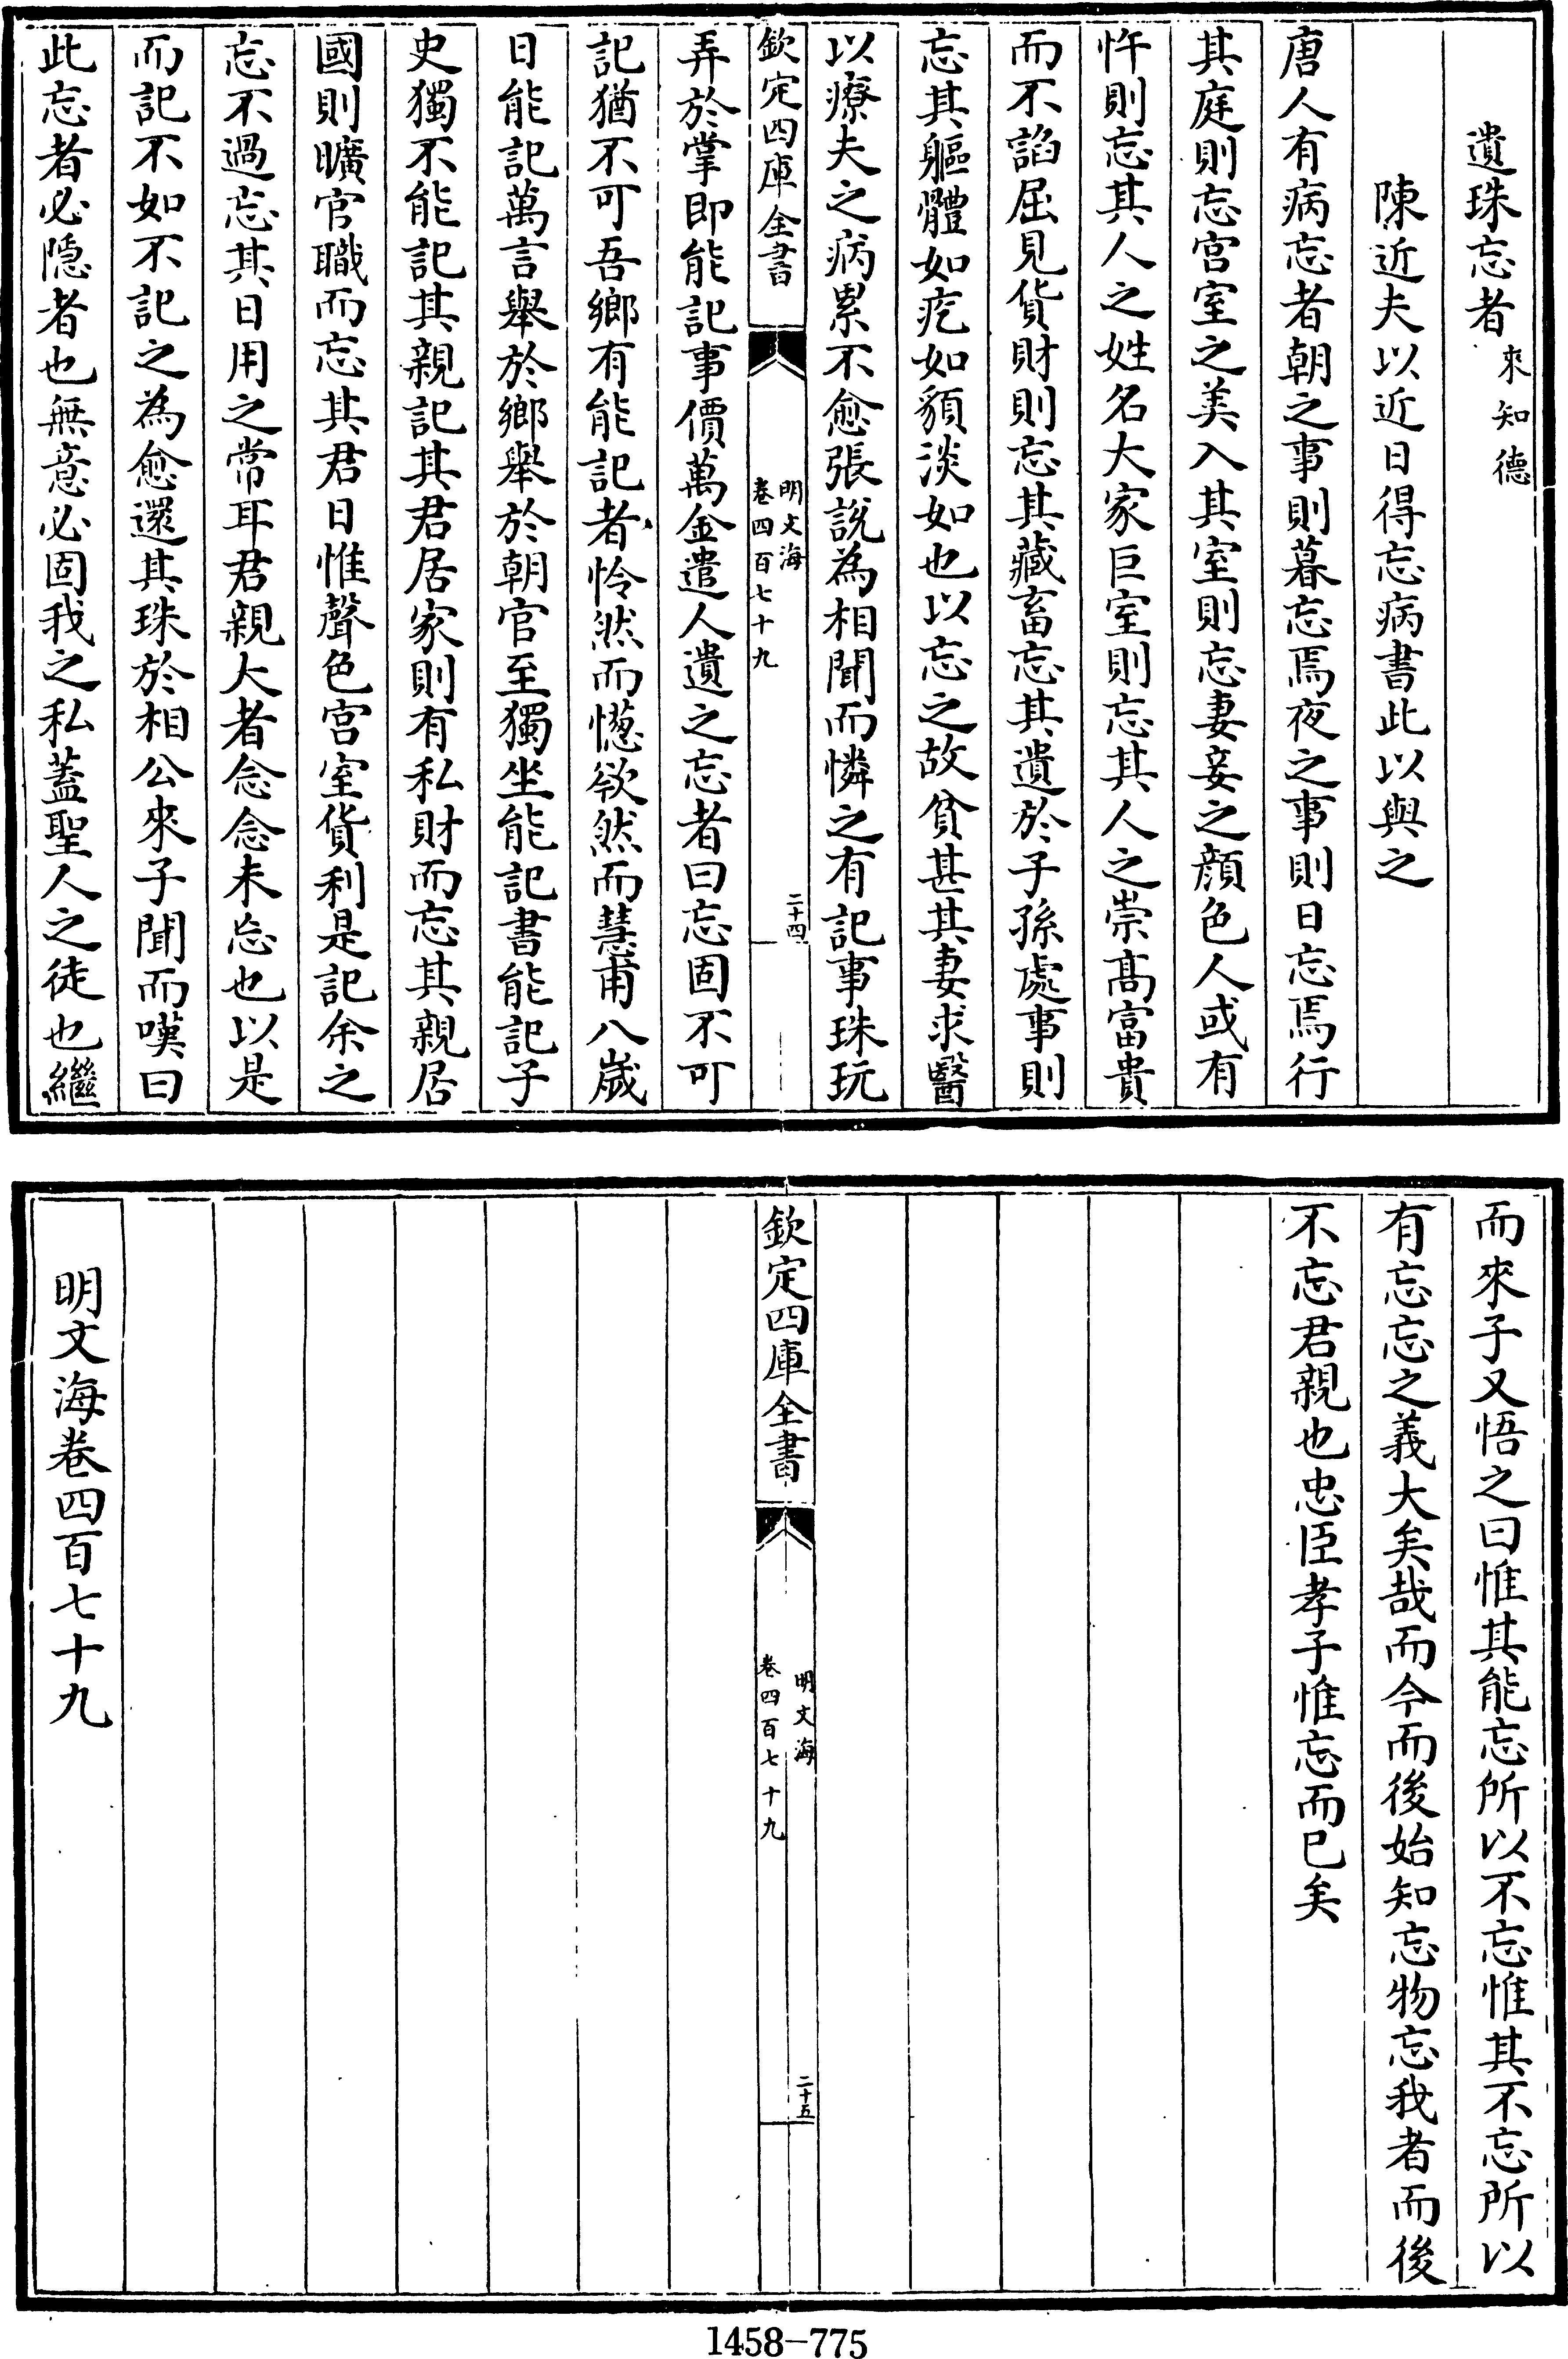 遺珠忘者來知德
陳近夫以近日得忘病書此以與之
唐人有病忘者朝之事則暮忘焉夜之事則日忘焉行
其庭則忘宫室之美入其室則忘妻妾之顔色人或有
忤則忘其人之姓名大家巨室則忘其人之崇髙富貴
而不諂屈見貨財則忘其藏畜忘其遺於子孫處事則
忘其軀體如疙如額淡如也以忘之故貧甚其妻求醫
以療夫之病累不愈張説為相聞而憐之有記事珠玩
欽定四庫全書
明文海
卷四百七十九
二十四
弄於掌即能記事價萬金遣人遺之忘者曰忘固不可
記猶不可吾鄉有能記者怜然而憽欲然而慧甫八嵗
日能記萬言舉於鄉舉於朝官至獨坐能記書能記子
史獨不能記其親記其君居家則有私財而忘其親居
國則曠官職而忘其君日惟聲色宫室貨利是記余之
忘不過忘其日用之常耳君親大者念念未忘也以是
而記不如不記之為愈還其珠於相公來子聞而嘆曰
此忘者必隱者也無意必固我之私蓋聖人之徒也繼
而來子又悟之曰惟其能忘所以不忘惟其不忘所以
有忘忘之義大矣哉而今而後始知忘物忘我者而後
不忘君親也忠臣孝子惟忘而已矣
欽定四庫全書
明文海
卷四百七十九
二十五
明文海卷四百七十九
1458-775